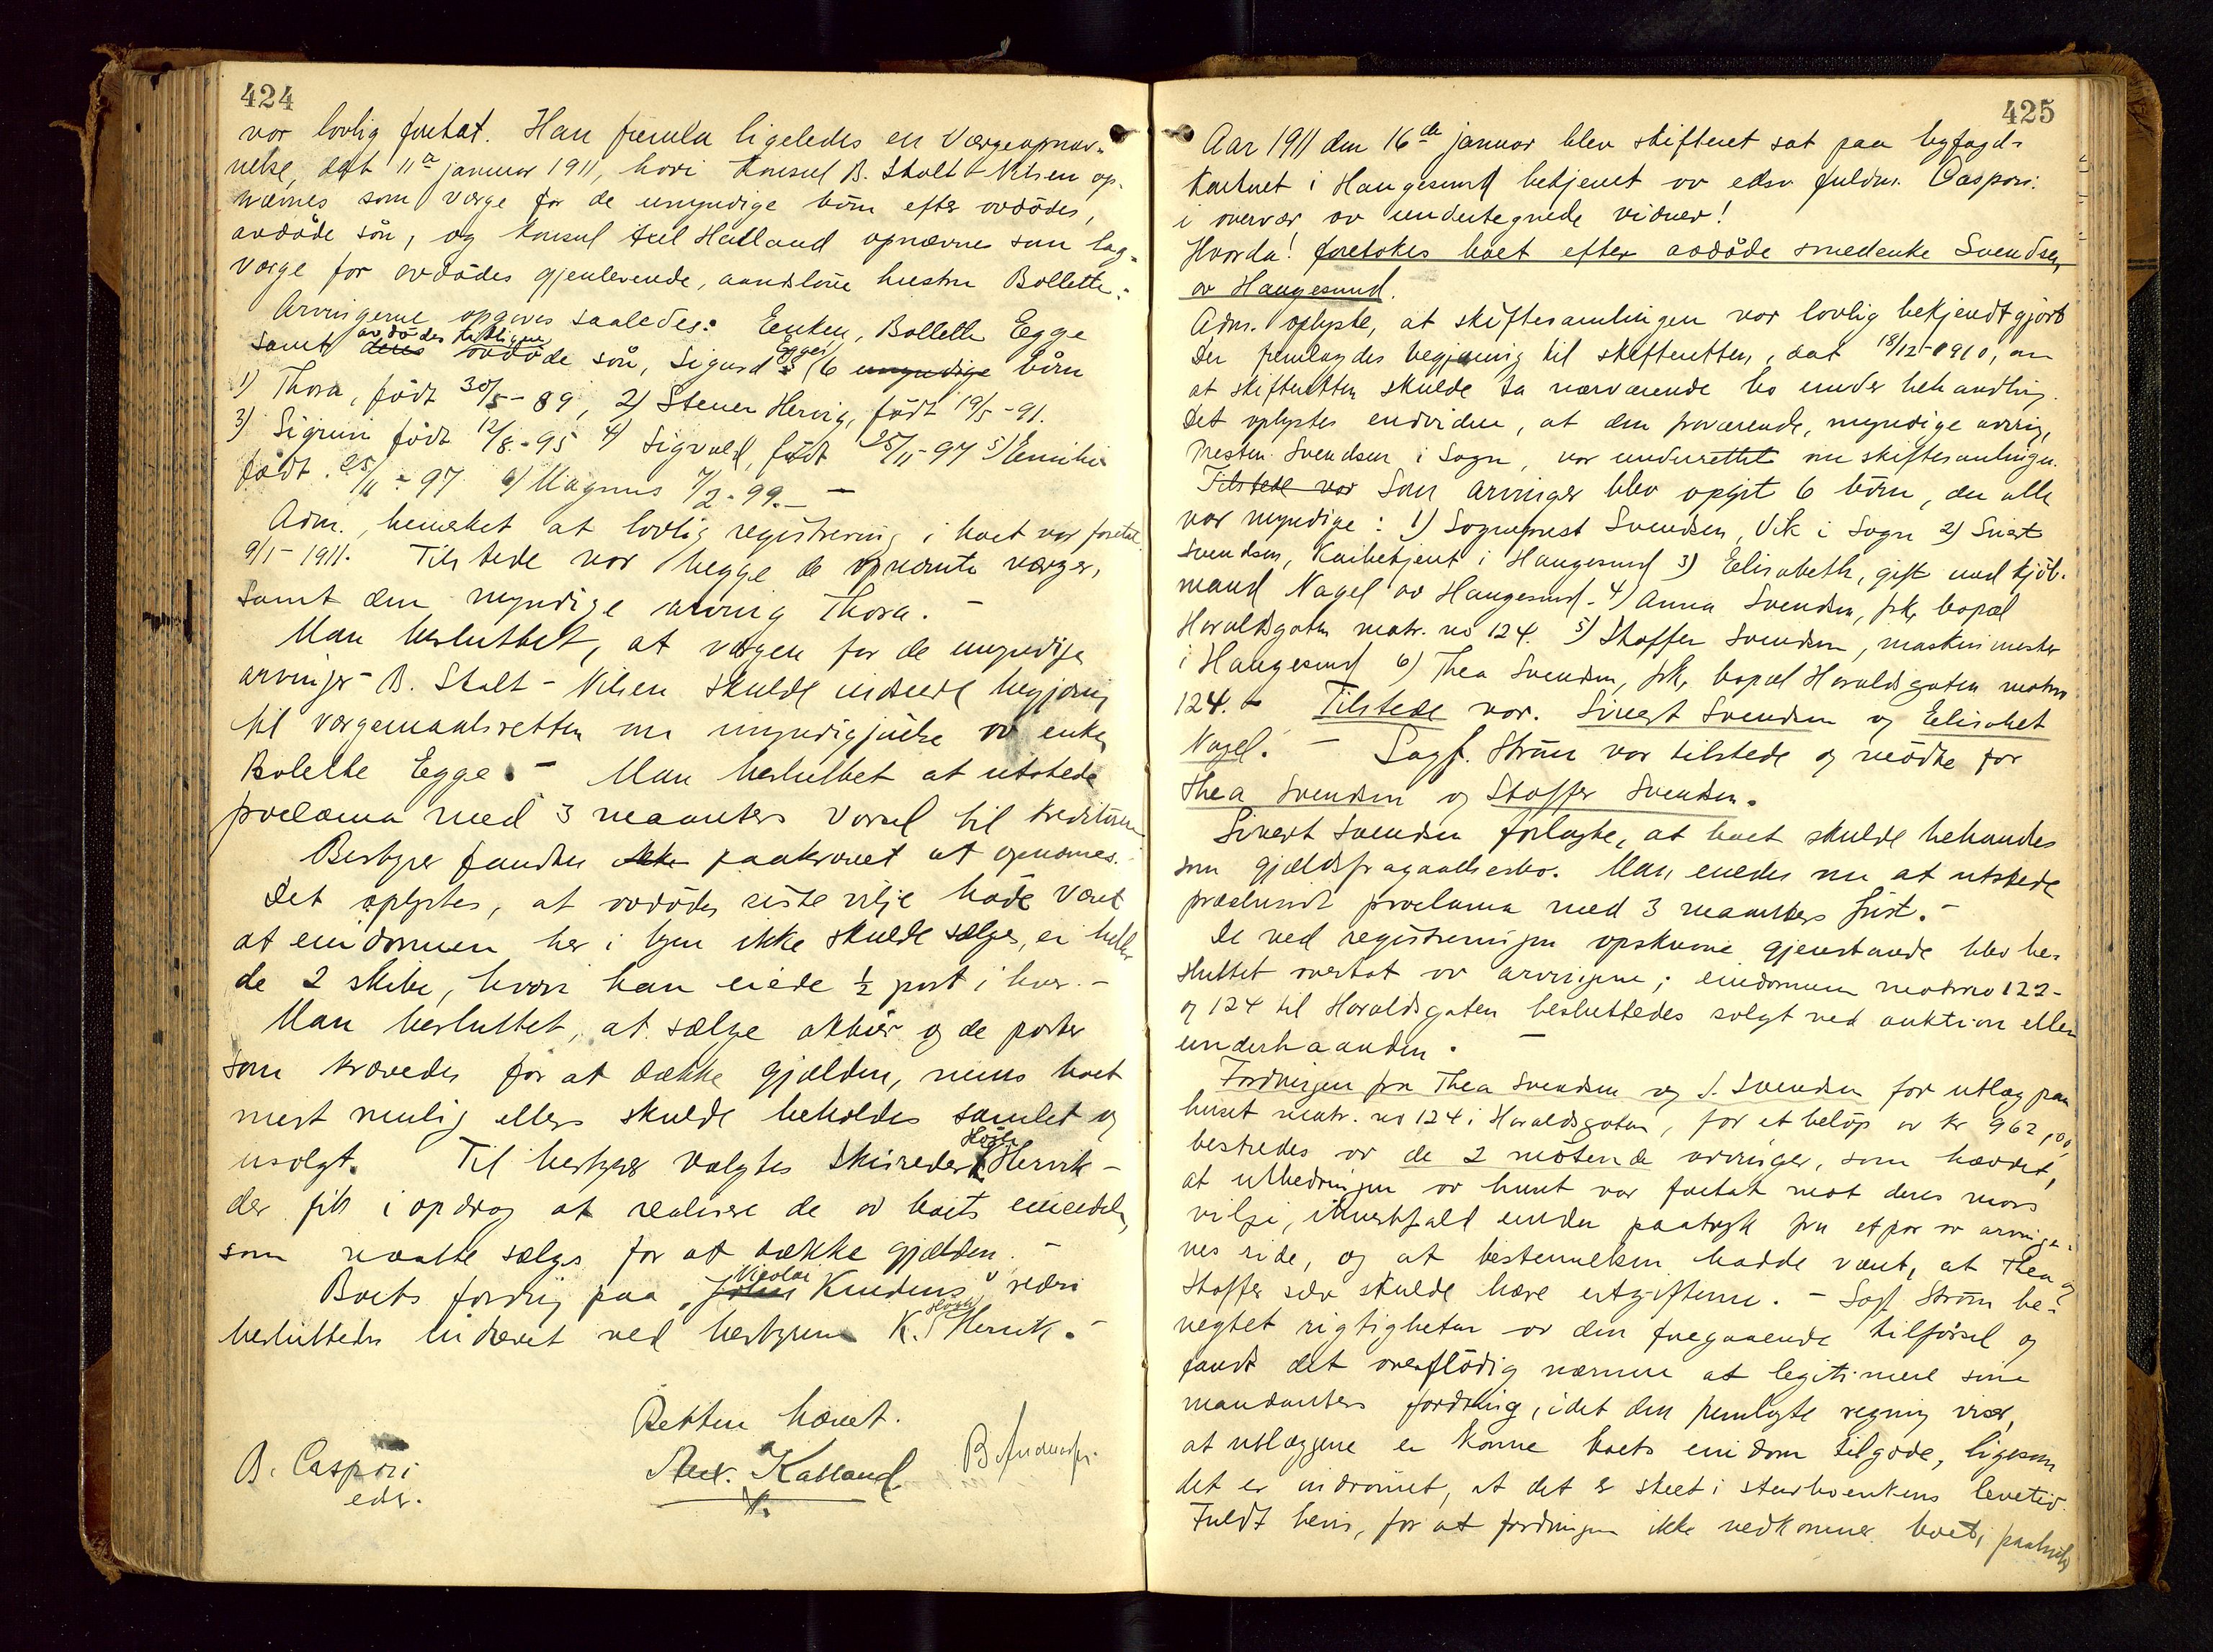 424
var lovlig foretat. Han fremla ligeledes en Værgeopnæv-
nelse, dat 11te januar 1911, hvori Konsul B. Stolt-Nilsen op-
nævnes som værge for de umyndige börn efter avdödes,
avdöde sön, og konsul Hatland opnævnes som lag-
værge for avdödes gjenlevende, aandslöse hustru Bollette.
Arvingerne opgaves saaledes: Enken, Bollette Egge
samt deres avdödes avdöde sön, Sigurd Egges (6 umyndige börn
1) Thora, födt 30/5-89, 2) Stener Hervig, födt 19/5-91.
3) Sigrun födt 12/8-95 4) Sigvald, födt 25/11-97 5) Emilie
födt 25/11-97 6) Magnus 7/2-99. —
Adm. bemerket at lovlig registrering i boet var foretat
9/1-1911. Tilstede var begge de opnævnte værger,
samt den myndige arving Thora. —
Man besluttet, at værgen for de umyndige
arvinger - B. Stolt-Nilsen skulde indsende begjæring
til værgemaalsretten om umyndiggjörelse av enken
Bolette Egge. — Man besluttet at utstede
proclama med 3 maaneters varsel til kreditorerne
Bestyrer fandtes ikke paakrævet at opnævnes.
Det oplystes, at avdödes siste vilje hadde været
at eiendommen her i byen ikke skulde sælges, ei heller
de 2 skibe, hvori han eiede ½ part i hver. —
Man besluttet, at sælge aktier og de parter
som krævedes for at dække gjælden, mens boet
mest mulig ellers skulde beholdes samlet og
usolgt. Til bestyrer valgtes Skibsreder K. Höyte Hervik —
der fik i opdrag at realisere de av boets eiendele,
som maatte sælges for at dække gjælden. —
Boets fordring paa "John Nicolai Knudsens" rederi
besluttedes inddrevet ved bestyreren K. Hervik. —
Retten hævet.
B. Caspari
eds.
Kalland
B. Andersen
425
Aar 1911 den 16de januar blev skifteret sat paa byfogd-
kontoret i Haugesund betjenet av edsv. fuldm. Caspari
i overvær av undertegnede vidner!
Hvorda! foretokes boet efter avdöde smedenke Svendsen
av Haugesund.
Adm. oplyste, at skiftesamlingen var lovlig bekjendtgjort
Der fremlagdes begjæring til skifteretten, dat 18/12-1910, om
at skifteretten skulde ta nærværende bo under behandling.
Det oplystes endvidere, at den fraværende, myndige arving,
Presten Svendsen i Sogn, var underrettet om skiftesamlingen.
Tilstede var Som arvinger blev opgit 6 börn, der alle
var myndige: 1) Sogneprest Svendsen, Vik i Sogn 2) Sivert
Svendsen, Kaibetjent i Haugesund 3) Elisabeth, gift med kjöb-
mand Nagel av Haugesund - 4) Anna Svendsen, frk, bopæl
Haraldsgaten matr. no 124. 5) Stoffer Svendsen, maskinmester
i Haugesund 6) Thea Svendsen, frk, bopæl Haraldsgaten matrno
124. — Tilstede var. Sivert Svendsen og Elisabet
Nagel. — Sagf. Ström var tilstede og mödte for
Thea Svendsen og Stoffer Svendsen.
Sivert Svendsen forlangte, at boet skulde behandles
som gjældsfragaaelsesbo. Man enedes om at utstede
præklusivt proclama med 3 maaneters frist. —
De ved registreringen opskrevne gjenstande blev be-
sluttet overtat av arvingene; eiendommen matrno 122-
og 124 til Haraldsgaten besluttedes solgt ved auktion eller
underhaanden. —
Fordringen fra Thea Svendsen og S. Svendsen for utlæg paa
huset matr. no 124 i Haraldsgaten, for et belöp av kr 962,00,
bestredes av de 2 mötende arvinger, som hævdet,
at utbedringen av huset var foretat mot deres mors
vilje, ihvertfald under paatryk fra et par av arvinger-
nes side, og at bestemmelsen hadde været, at Thea og
Stoffer selv skulde bære utgifterne. — Sagf. Ström be-
negtet rigtigheten av den foregaaende tilförsel og
fandt det overflödig nærmere at legitimere sine
mandanters fordring, idet den fremlagte regning viser,
at utlæggene er komne boets eiendom tilgode, ligesom
det er indrömmet, at det er skeet i sterboenkens levetid.
Fuldt bevis, for at fordringen ikke vedkommer boet, paahviler